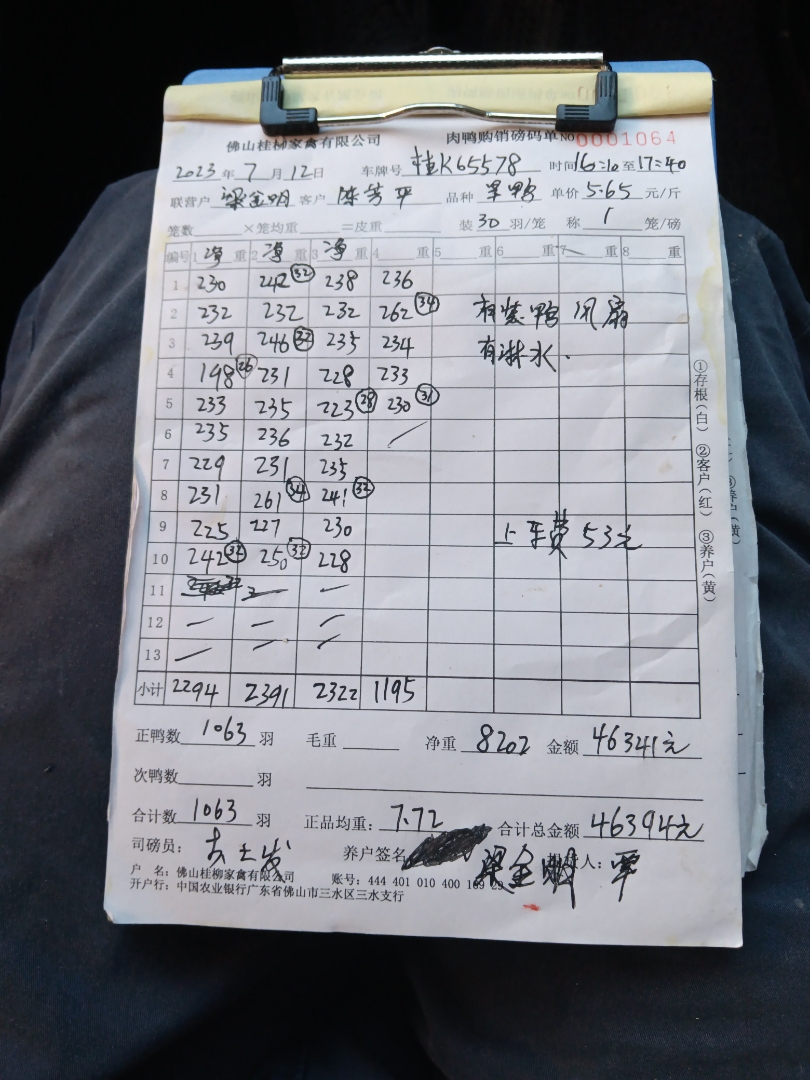 佛山桂柳家禽有限公司 肉鸭购销磅码单 No 0001064
2023年7月12日 车牌号 桂K65578 时间16:10至17:40
联营户 梁金明 客户 陈芳平 品种 单价 5.65 元/斤
笼数 ×笼均重 =皮重 装30羽/笼 称 1 笼/磅
编号 1 净 重 2 净 重 3 净 重 4 重 5 重 6 重 7 重 8 重
1 230 242 (32) 238 236
2 232 232 232 262 (34) 有装鸭风扇
3 239 246 (32) 235 234 有淋水.
4 198 (26) 231 228 233
5 233 235 223 (28) 230 (31)
6 235 236 232 /
7 229 231 235
8 231 261 (34) 241 (32)
9 225 227 230 上车费 53元
10 242 (32) 250 (32) 228
11
12
13
小计 2294 2391 2322 1195
正鸭数 1063 羽 毛重 净重 8202 金额 46341元
次鸭数 羽
合计数 1063 羽 正品均重: 7.72 合计总金额 46394元
司磅员: 养户签名 梁金明 人: 覃
户 名: 佛山桂柳家禽有限公司 账号: 444 401 010 400 169 29
开户行: 中国农业银行广东省佛山市三水区三水支行
①存根(白) ②客户(红) ③养户(黄)